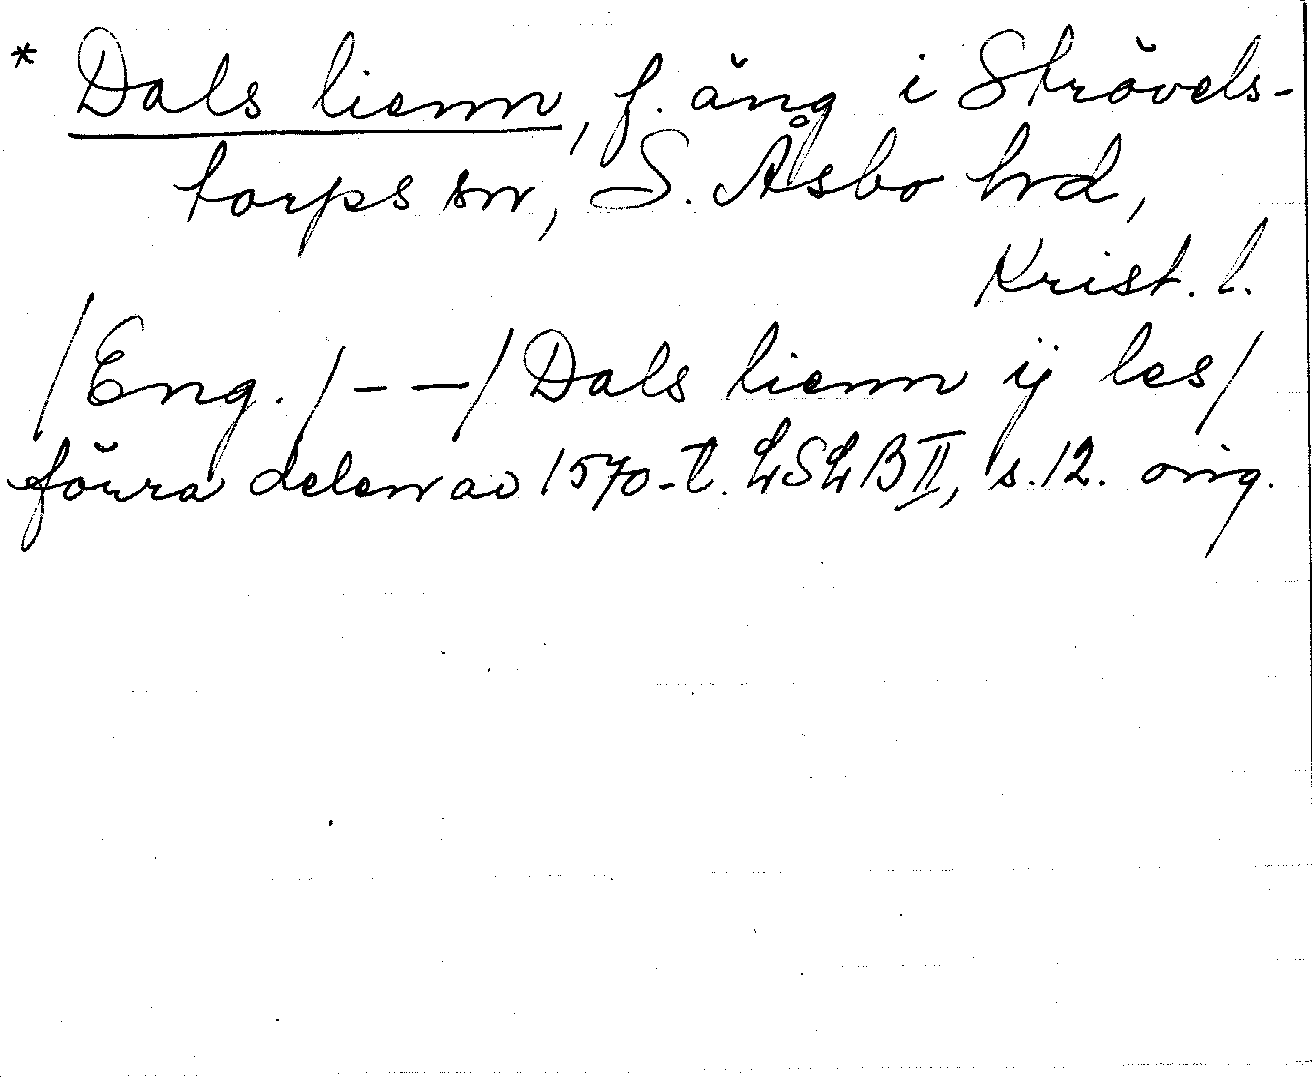 * Dals lienn, f. äng i Strövels-
torps sn, S. Åsbo hd,
Krist. l.
/Eng./ – – / Dals lienn ij les/
förra delen av 1570-t. LSLB II, s. 12. orig.